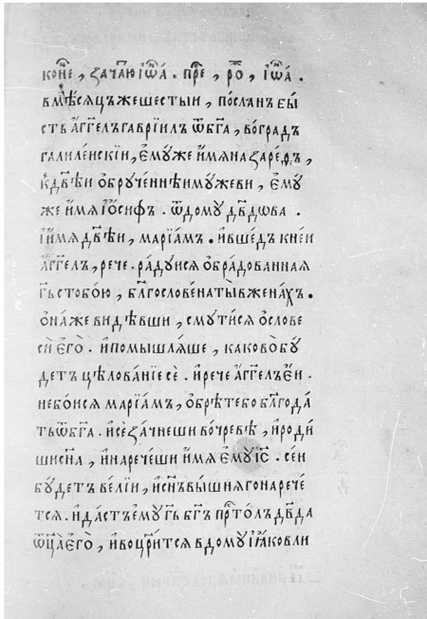 коне҃ , зача́ю іѡ҃а . пре҃ , ро҃ , іѡ҃а .
вмѣсяцъжешестыи , посланъбы
ствъ а҆гг҃елъгавріилъ ѿбг҃а , во градъ
галиле́искїи , є҆муже и҆мяназаре́дъ ,
кдв҃ѣи ѻ҆бруче́ннѣимужеви , є҆мꙋ
же и҆мя іѻ҆сифъ . ѿдомꙋ дв҃дѡва .
и҆и҆мядв҃ѣи , марїа́мъ . и҆вше́дъ кне́и
а҆гг҃елъ , рече . ра́дꙋися ѻ҆бра́дованная
гь҃стобо́ю , бл҃гослове́натывжена́хъ .
ѻ҆на́же видѣвши , смꙋти́ся ѻ҆слове
сѝ є҆гѻ̀ . и҆помышлѧ́ше , каково̀бꙋ
детъ цѣлова́нїе сѐ . и҆рече а҆гг҃елъ є҆и .
небо́ися марїа́мъ , ѻ҆брѣ́тебо бл҃года́
ть ѿбг҃а . и҆се̑за́чнеши во чре́вѣ , и҆роди́
шисн҃а , и҆нарече́ши и҆мя є҆мꙋ іс҃ . се́и
бꙋ́детъ ве́лїи , и҆сн҃ъвы́шнягонарече́
тся . и҆да́стъ є҆мꙋ гь҃ бг҃ъ прⷭ҇то́лъ дв҃да
ѿц҃а є҆гѻ̀ , и҆воцр҃и́тся вдомꙋ і҆а́ковли